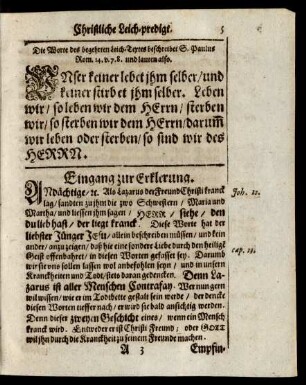 Christliche Leich-predigt. 5
Die Worte des begehrten Leich-Textes beschreibet S. Paulus
Rom. 14. v. 7. 8. und lauten also.
UNser keiner lebet jhm selber/und
keiner stirbet jhm selber. Leben
wir/so leben wir dem HErrn/sterben
wir/so sterben wir dem HErrn/darumb
wir leben oder sterben/so sind wir des
HERRN.
Eingang zur Erklerung.
ANdächtige/ꝛc. Als Lazarus der Freund Christi kranck
lag/sandten zu jhm die zwo Schwestern/Maria und
Martha/und liessen jhm sagen/HERR/siehe/den
du lieb hast/der liegt kranck. Diese Wort hat der
liebster Jünger JEsu/allein beschreiben müssen/und kein
ander/anzuzeigen/daß hie eine sondere Liebe durch den heiligē
Geist offenbahret/in diesen Worten gefasset sey. Darumb
wir sie uns sollen lassen wol anbefohlen seyn/und in unsern
Kranckheiten und Todt/stets daran gedencken. Denn La-
zarus ist aller Menschen Contrafay. Wer nun gern
wil wissen/wie er im Todtbette gestalt sein werde/der dencke
diesen Worten tieffer nach/er wird sie bald ansichtig werden.
Denn dieser zweyen Geschicht eines/wenn ein Mensch
kranck wird. Entweder er ist Christi Freund; oder GOTT
wil jhn durch die Kranckheit zu seinem Freunde machen.
Joh. 11.
cap. 11.
A 3 Empfin-